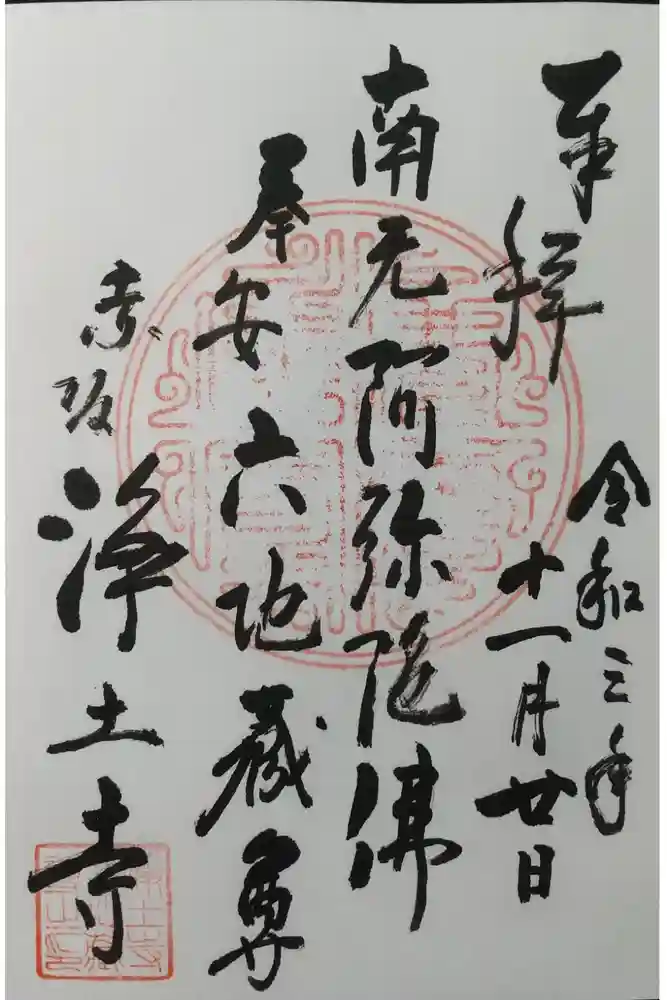 奉拝
令和三年
十一月廿日
南无阿弥陀佛
奉安六地蔵尊
赤坂
浄土寺